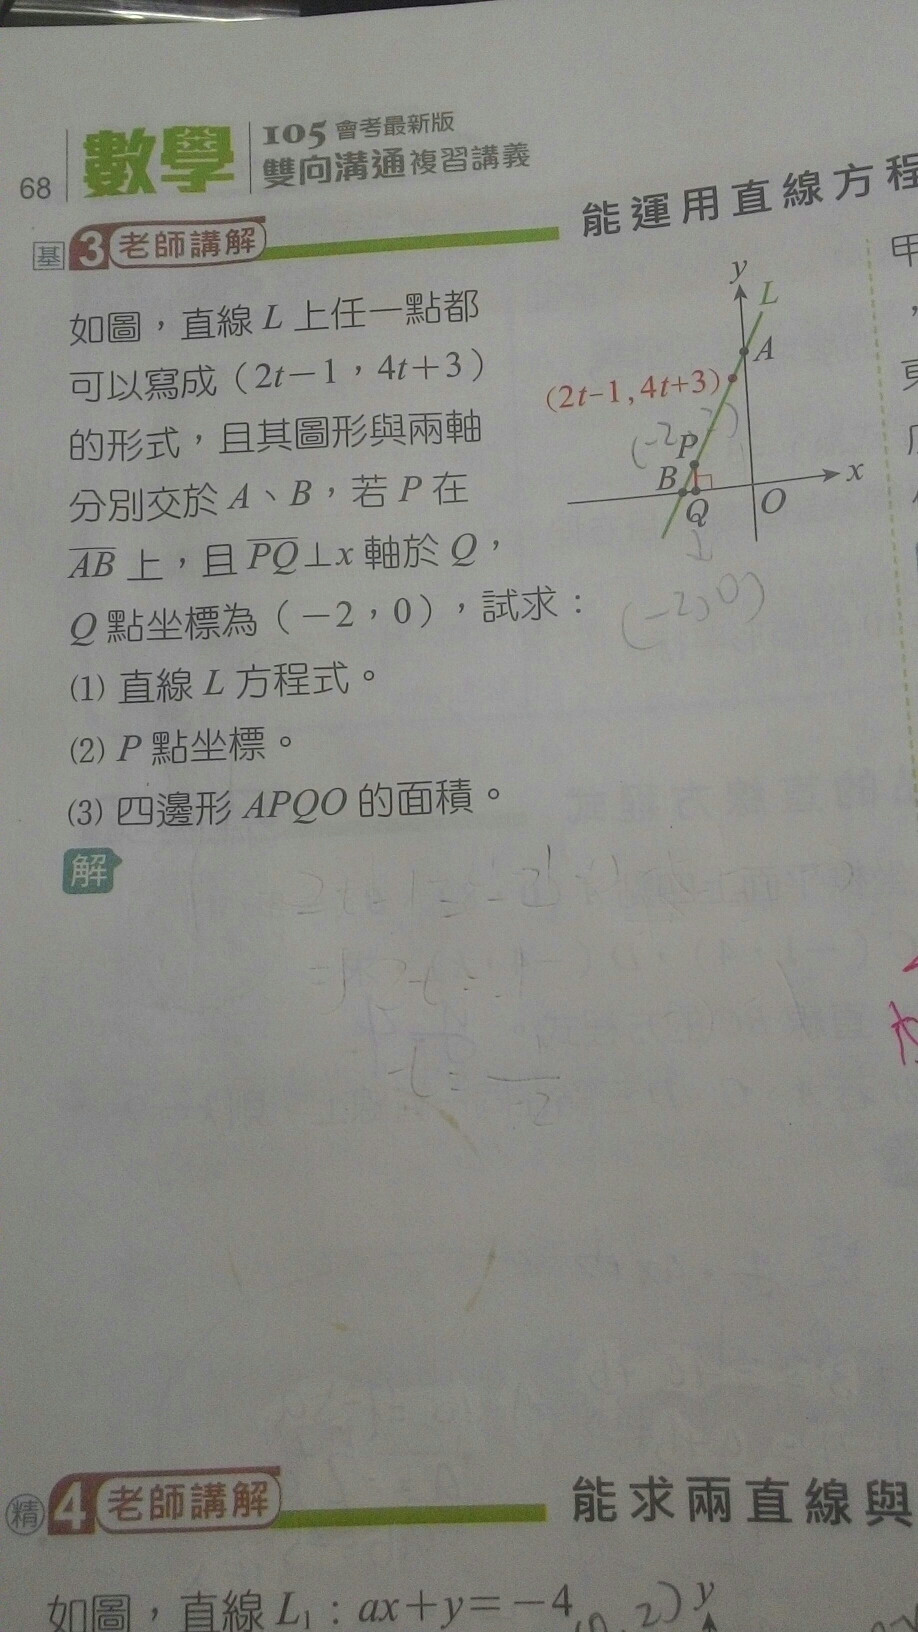 68
數學
105 會考最新版
雙向溝通複習講義
基 3 老師講解
能運用直線方程
如圖，直線 L 上任一點都
可以寫成（2t－1，4t＋3）
的形式，且其圖形與兩軸
分別交於 A、B，若 P 在
AB 上，且 PQ⊥x 軸於 Q，
Q 點坐標為（－2，0），試求：
(1) 直線 L 方程式。
(2) P 點坐標。
(3) 四邊形 APQO 的面積。
y
L
A
(2t-1, 4t+3)
P
B
x
Q
O
(-2, 0)
甲
解
精 4 老師講解
能求兩直線與
如圖，直線 L₁：ax＋y＝－4
y